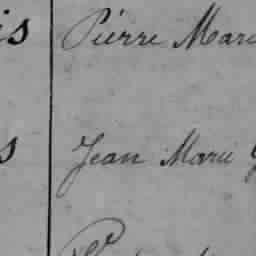 is Pierre Mari
s Jean Marie